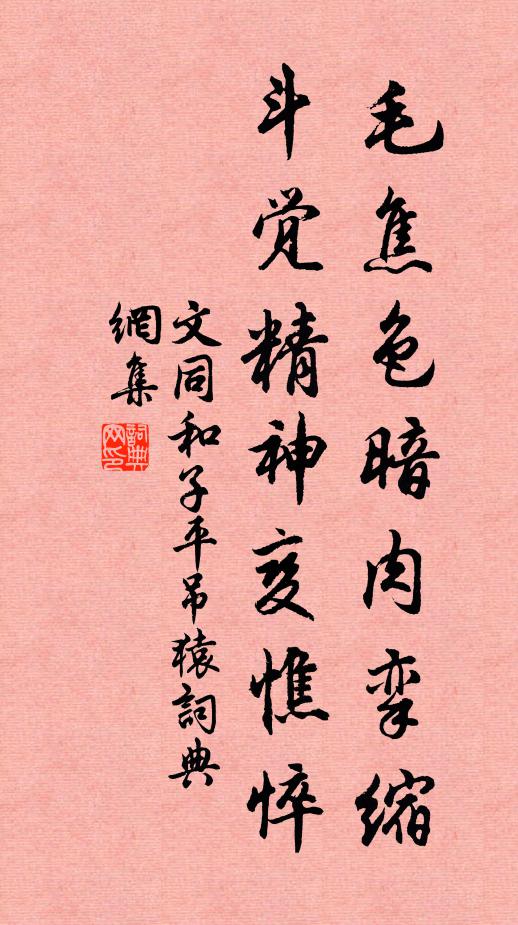 毛焦色暗肉挛缩
斗觉精神变憔悴
文同和子平吊猿詞典
網集
詞典網印